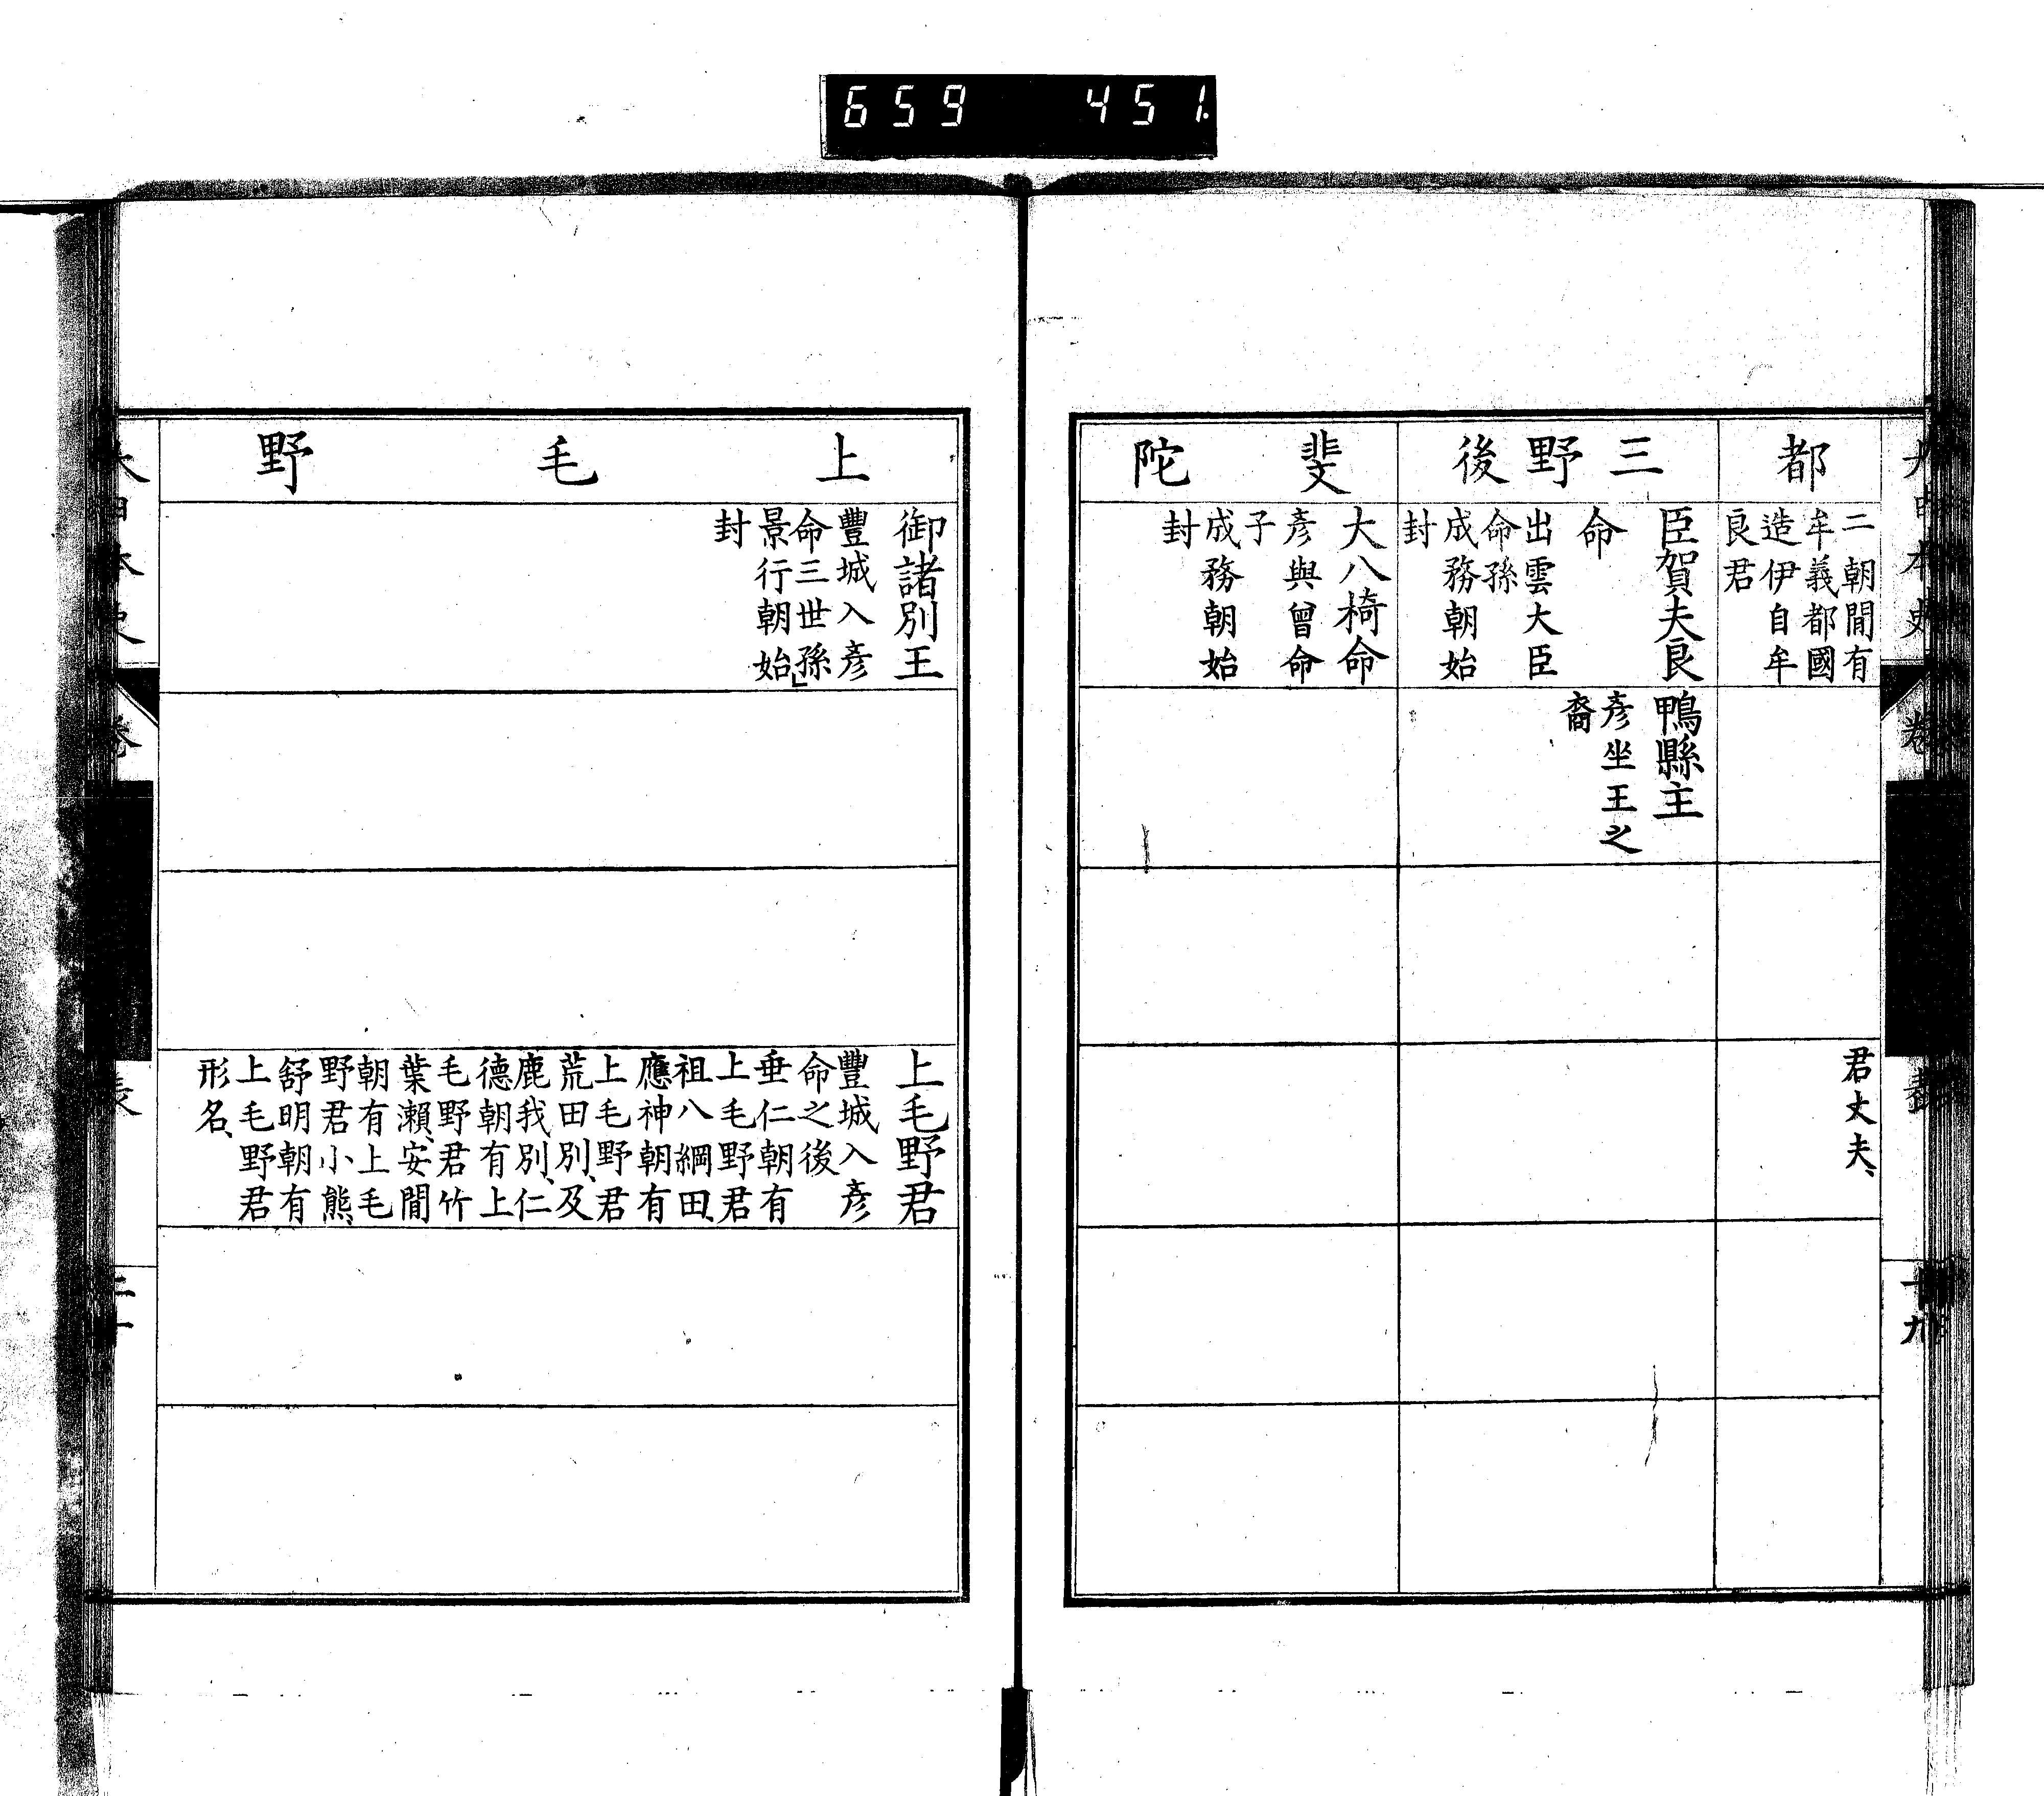 659 451.
都
二朝間有
牟義都國
造伊自牟
良君
君丈夫、
三野後
臣賀夫良
命
出雲大臣
命孫
成務朝始
封
鴨縣主
彦坐王之
裔
斐陀
大八椅命
彦與曾命
子
成務朝始
封
上毛野
御諸別王
豐城入彦
命三世孫
景行朝始
封
上毛野君
豐城入彦
命之後
垂仁朝有
上毛野君
祖八綱田、
應神朝有
上毛野君
荒田別、及
鹿我別、仁
德朝有上
毛野君竹
葉瀨、安閒
朝有上毛
野君小熊、
舒明朝有
上毛野君
形名、